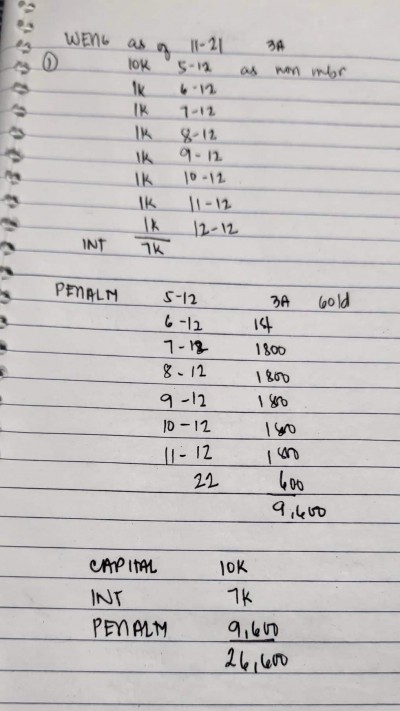 WENG as of 11-21 3A
① 10K 5-12 as non mbr
1K 6-12
1K 7-12
1K 8-12
1K 9-12
1K 10-12
1K 11-12
1K 12-12
INT 7K
PENALTY 5-12 3A Gold
6-12 1st
7-12 1800
8-12 1800
9-12 1800
10-12 1800
11-12 1800
22 600
9,600
CAPITAL 10K
INT 7K
PENALTY 9,600
26,600